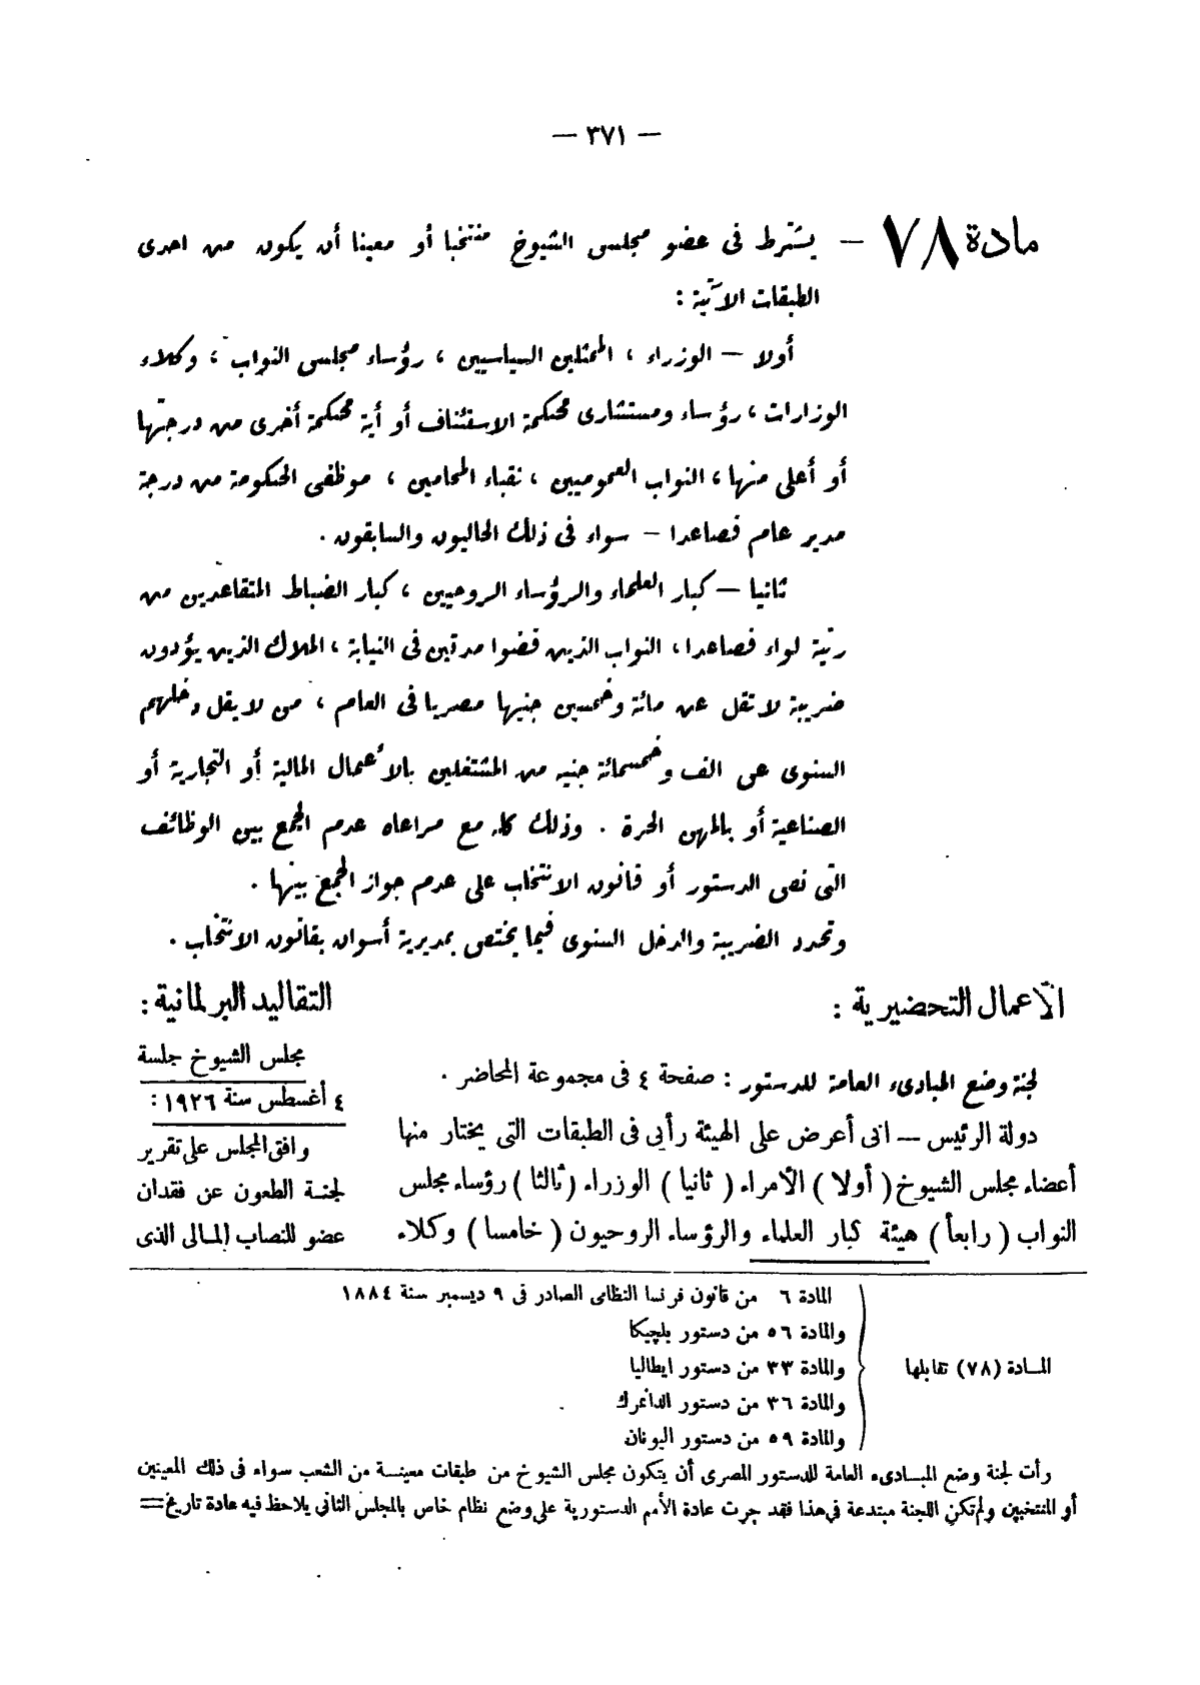 — ٣٧١ —
مادة ٧٨ — يشترط فى عضو مجلس الشيوخ منتخبا أو معينا أن يكون من احدى
الطبقات الآتية :
أولا — الوزراء ، الممثلين السياسيين ، رؤساء مجلس النواب ، وكلاء
الوزارات ، رؤساء ومستشارى محكمة الاستئناف أو أية محكمة أخرى من درجتها
أو أعلى منها ، النواب العموميين ، نقباء المحامين ، موظفى الحكومة من درجة
مدير عام فصاعدا — سواء فى ذلك الحاليون والسابقون .
ثانيا — كبار العلماء والرؤساء الروحيين ، كبار الضباط المتقاعدين من
رتبة لواء فصاعدا ، النواب الذين قضوا مدتين فى النيابة ، الملاك الذين يؤدون
ضريبة لا تقل عن مائة وخمسين جنيها مصريا فى العام ، من لا يقل دخلهم
السنوى عن الف وخمسمائة جنيه من المشتغلين بالأعمال المالية أو التجارية أو
الصناعية أو بالمهن الحرة . وذلك كله مع مراعاة عدم الجمع بين الوظائف
التى نص الدستور أو قانون الانتخاب على عدم جواز الجمع بينها .
وتحدد الضريبة والدخل السنوى فيما يختص بمديرية أسوان بقانون الانتخاب .
الأعمال التحضيرية :
لجنة وضع المبادىء العامة للدستور : صفحة ٤ فى مجموعة المحاضر .
دولة الرئيس — انى أعرض على الهيئة رأيى فى الطبقات التى يختار منها
أعضاء مجلس الشيوخ ( أولا ) الأمراء ( ثانيا ) الوزراء ( ثالثا ) رؤساء مجلس
النواب ( رابعاً ) هيئة كبار العلماء والرؤساء الروحيون ( خامسا ) وكلاء
التقاليد البرلمانية :
مجلس الشيوخ جلسة
٤ أغسطس سنة ١٩٢٦ :
وافق المجلس على تقرير
لجنة الطعون عن فقدان
عضو للنصاب المالى الذى
المادة (٧٨) تقابلها
المادة ٦ من قانون فرنسا النظامى الصادر فى ٩ ديسمبر سنة ١٨٨٤
والمادة ٥٦ من دستور بلجيكا
والمادة ٣٣ من دستور ايطاليا
والمادة ٣٦ من دستور الدانمرك
والمادة ٥٩ من دستور اليونان
رأت لجنة وضع المبادىء العامة للدستور المصرى أن يتكون مجلس الشيوخ من طبقات معينة من الشعب سواء فى ذلك المعينين
أو المنتخبين ولم تكن اللجنة مبتدعة فى هذا فقد جرت عادة الأمم الدستورية على وضع نظام خاص بالمجلس الثانى يلاحظ فيه عادة تاريخ=